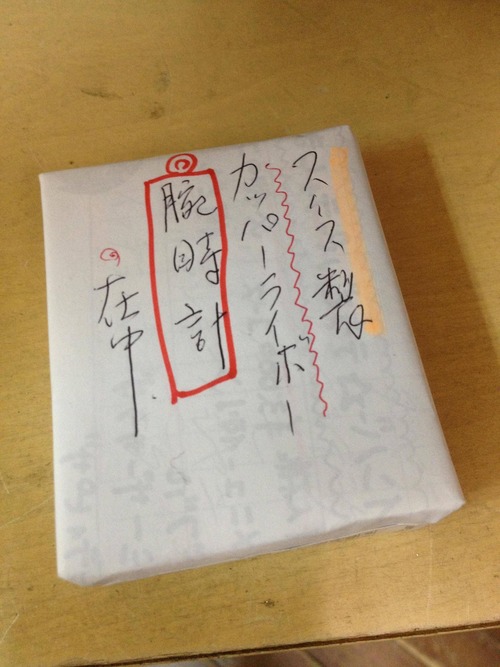 スイス製
カッパーライボー
腕時計
在中